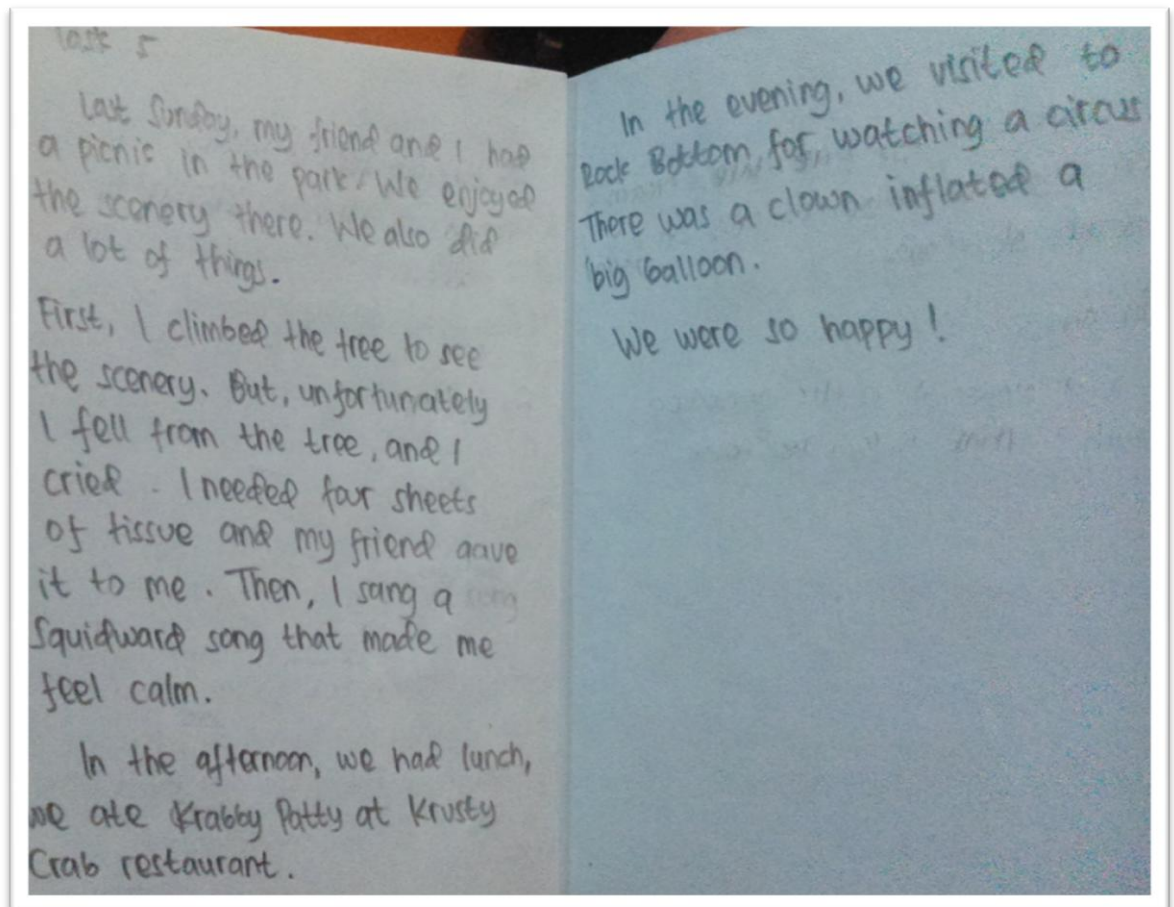 Task 5
Last Sunday, my friend and I had
a picnic in the park. We enjoyed
the scenery there. We also did
a lot of things.
First, I climbed the tree to see
the scenery. But, unfortunately
I fell from the tree, and I
cried. I needed four sheets
of tissue and my friend gave
it to me. Then, I sang a
Squidward song that made me
feel calm.
In the afternoon, we had lunch,
we ate Krabby Patty at Krusty
Crab restaurant.
In the evening, we visited to
Rock Bottom for watching a circus
There was a clown inflated a
big balloon.
We were so happy!